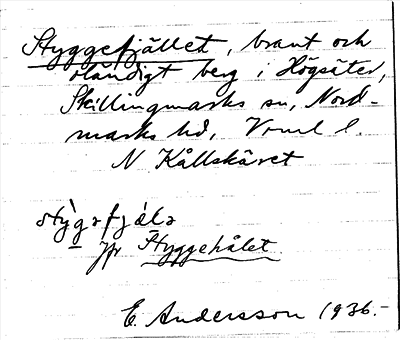 Styggefjället, brant och
oländigt berg i Högsäter,
Skillingmarks sn, Nord-
marks hd, Vrml l.
N Kållskäret
stỳgəfjɛ́lə
jfr Stygghålet
E. Andersson 1936.-